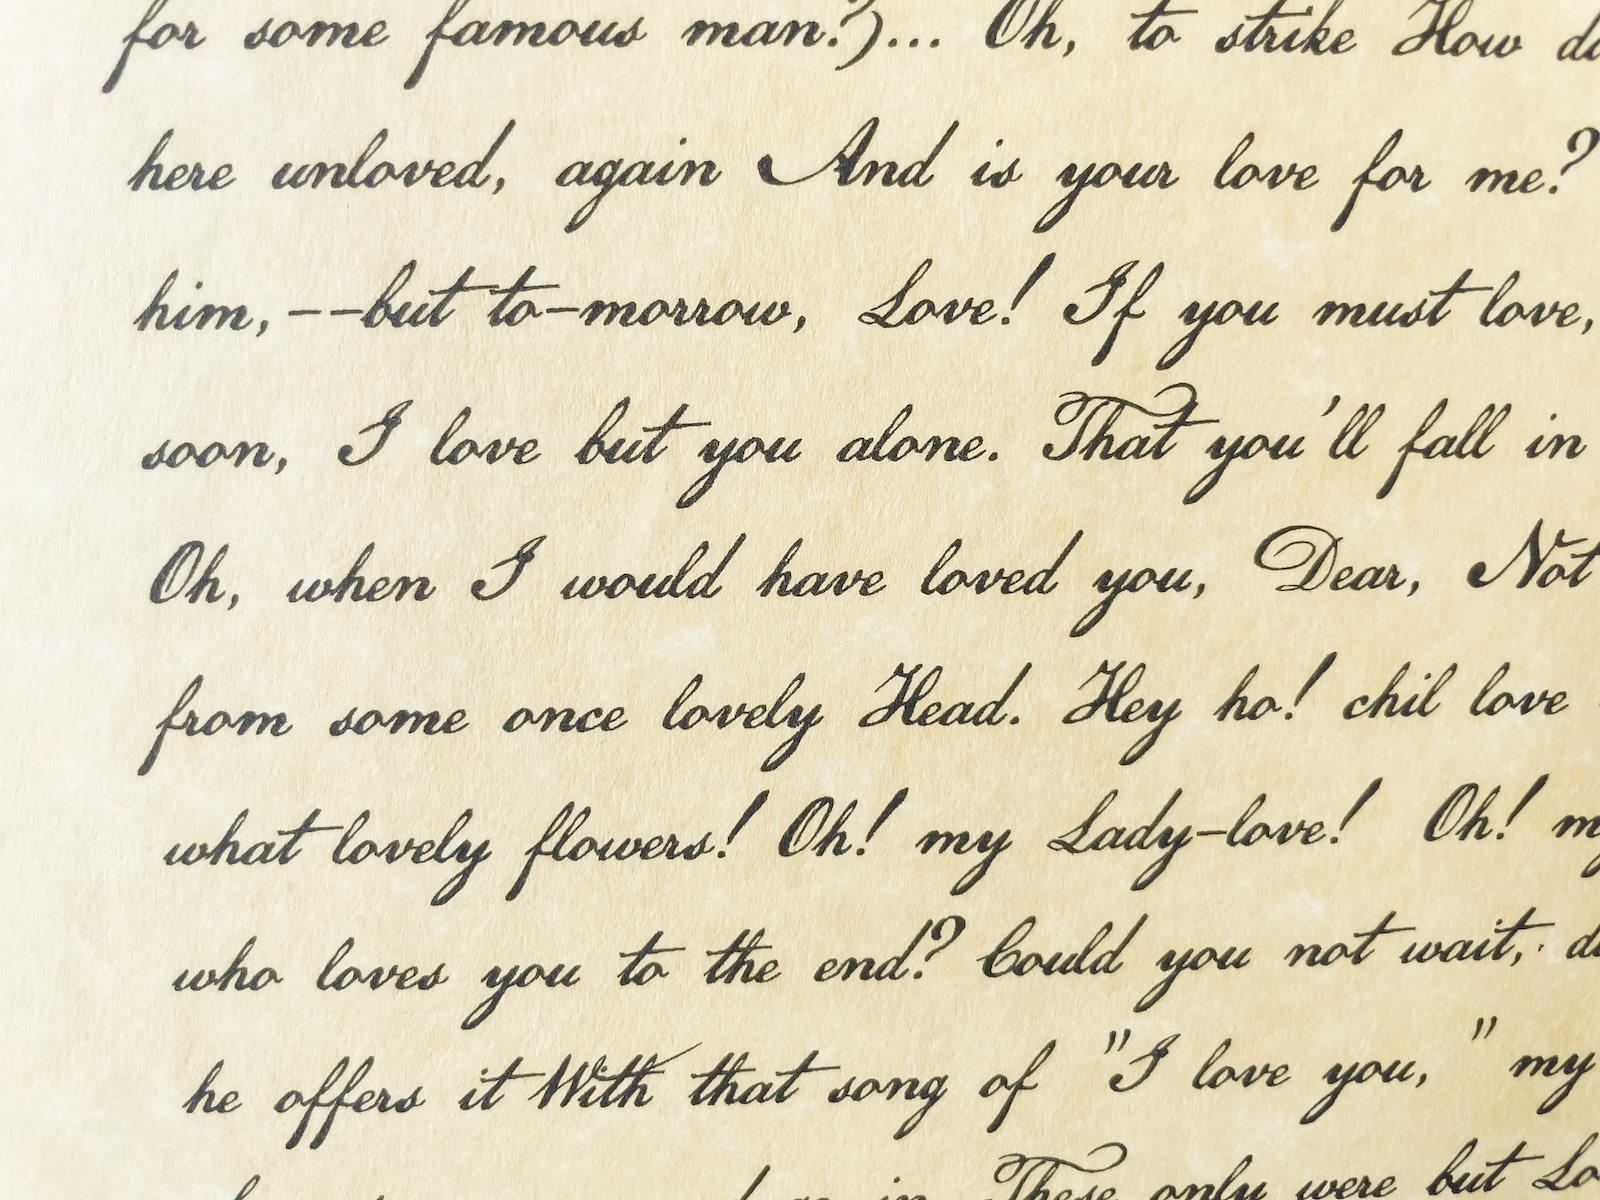 for some famous man?)... Oh, to strike How
here unloved, again And is your love for me?
him,--but to-morrow, Love! If you must love,
soon, I love but you alone. That you'll fall in
Oh, when I would have loved you, Dear, Not
from some once lovely Head. Hey ho! chil love
what lovely flowers! Oh! my Lady-love! Oh!
who loves you to the end? Could you not wait,
he offers it With that song of "I love you," my
in. These only were but